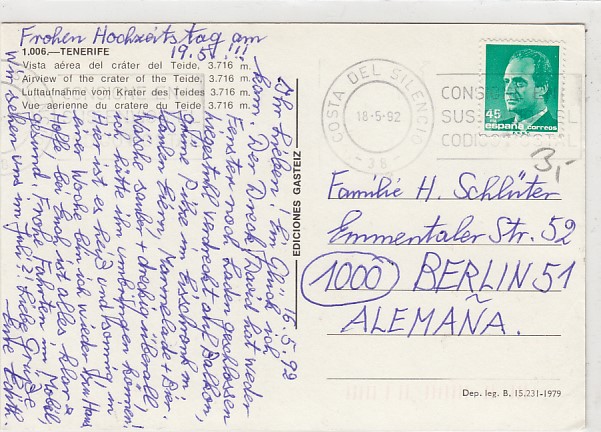 Frohen Hochzeitstag am
19.5.!!!
1.006.—TENERIFE
Vista aérea del cráter del Teide. 3.716 m.
Airview of the crater of the Teide. 3.716 m.
Luftaufnahme vom Krater des Teides 3.716 m.
Vue aerienne du cratere du Teide. 3.716 m.
EDICIONES GASTEIZ
16.5.92
Ihr Lieben! Ein Glück ich
kam! Der Dreck! David hat weder
Fenster noch Laden geschlossen
Liegestuhl verdreckt auf Balkon,
grüne Pilze im Eisschrank m.
Eiern, Marmelade + Bier.
Wäsche sauber + dreckig überall
ich hätte ihn umbringen können!
Hier ist es heiß und komm, in
einer Woche bin ich wieder
Hoffe bei Euch ist alles klar &
gesund. Frohe Fahrten im Mobil,
wir sehen uns im Juli? Liebe Grüße
Eure Edith.
COSTA DEL SILENCIO
18-5-92
-38-
CONS
SUS EL
CODIGO POSTAL
45
españa
correos
3,-
Familie H. Schlüter
Emmentaler Str. 52
1000 BERLIN 51
ALEMAÑA.
Dep. leg. B. 15.231-1979